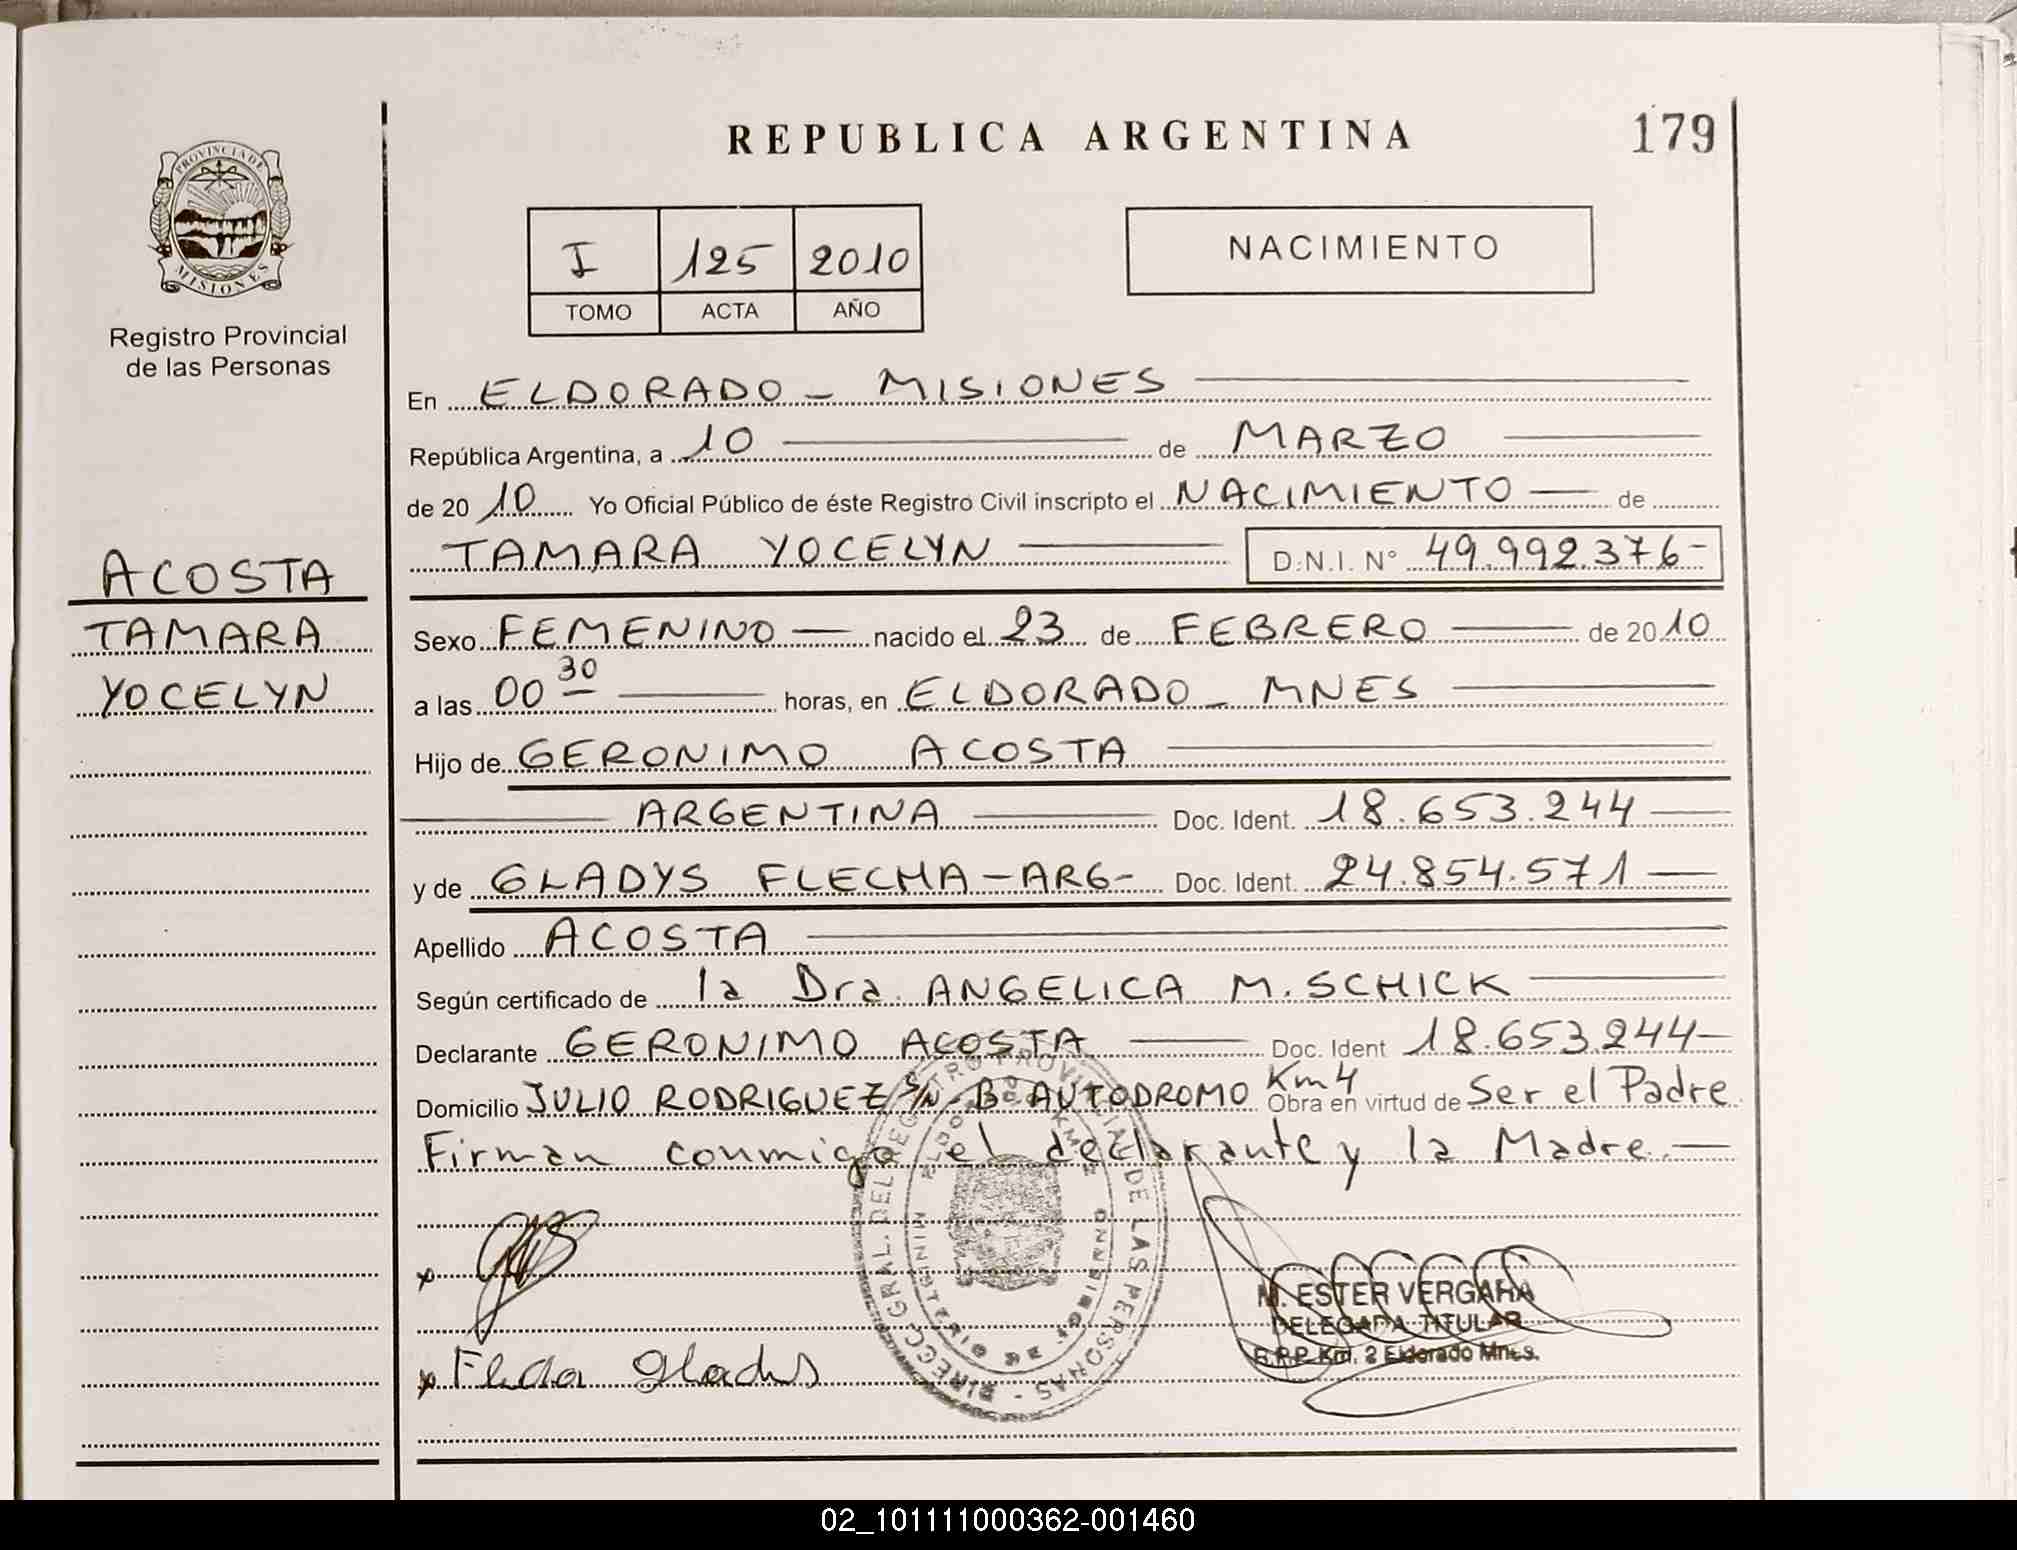 REPUBLICA ARGENTINA
179
PROVINCIA DE
MISIONES
Registro Provincial
de las Personas
I 125 2010
TOMO ACTA AÑO
NACIMIENTO
En ELDORADO - MISIONES
República Argentina, a 10 de MARZO
de 2010 Yo Oficial Público de éste Registro Civil inscripto el NACIMIENTO de
TAMARA YOCELYN D.N.I. N° 49.992.376-
ACOSTA
TAMARA
YOCELYN
Sexo FEMENINO nacido el 23 de FEBRERO de 2010
a las 00 30 horas, en ELDORADO - MNES
Hijo de GERONIMO ACOSTA
ARGENTINA Doc. Ident. 18.653.244
y de GLADYS FLECHA - ARG- Doc. Ident. 24.854.571
Apellido ACOSTA
Según certificado de la Dra. ANGELICA M. SCHICK
Declarante GERONIMO ACOSTA Doc. Ident 18.653.244
Domicilio JULIO RODRIGUEZ S/N - Bº AUTODROMO Km 4 Obra en virtud de Ser el Padre
Firman conmigo el declarante y la Madre.
DIRECC. GRAL. DEL REGISTRO PROVINCIAL DE LAS PERSONAS
M. ESTER VERGARA
DELEGADA TITULAR
R.P.P. Km. 2 Eldorado Mnes.
Gladys
02_101111000362-001460